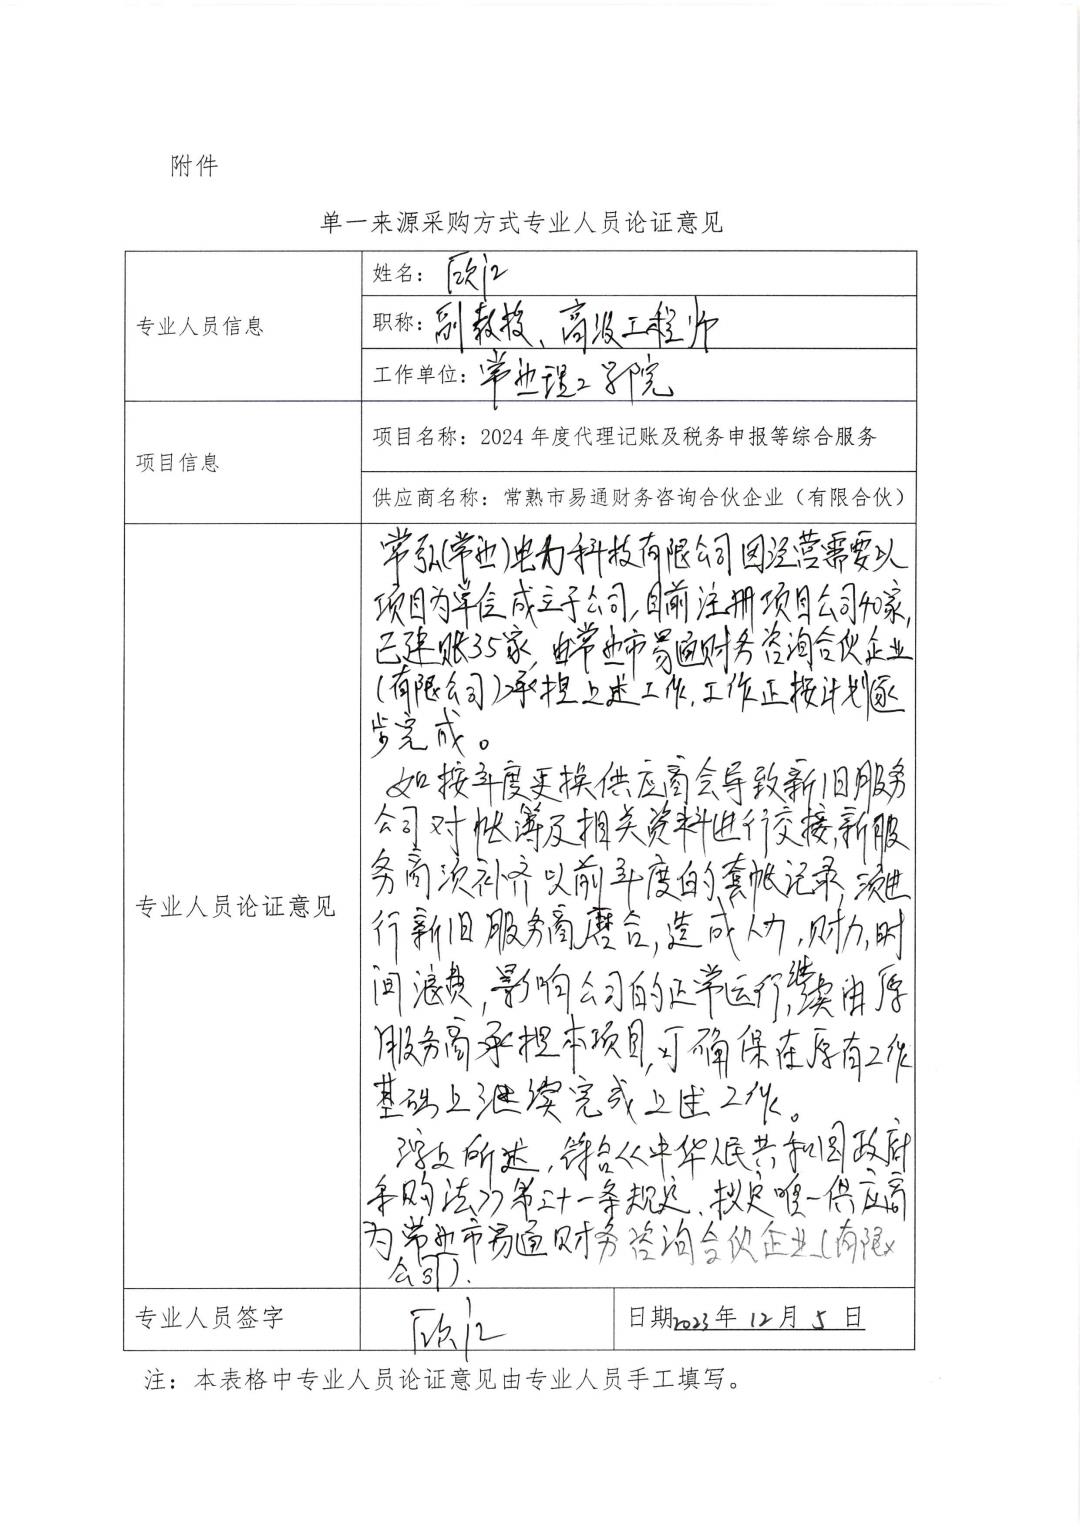 附件
单一来源采购方式专业人员论证意见
专业人员信息
姓名：欧江
职称：副教授、高级工程师
工作单位：常熟理工学院
项目信息
项目名称：2024 年度代理记账及税务申报等综合服务
供应商名称：常熟市易通财务咨询合伙企业（有限合伙）
专业人员论证意见
常弘(常熟)电力科技有限公司因经营需要以
项目为单位成立子公司,目前注册项目公司40家,
已建账35家,由常熟市易通财务咨询合伙企业
(有限公司)承担上述工作,工作正按计划逐
步完成。
如按年度更换供应商会导致新旧服务
公司对帐簿及相关资料进行交接,新服
务商须补齐以前年度的套帐记录,须进
行新旧服务商磨合,造成人力,财力,时
间浪费,影响公司的正常运行,继续由原
服务商承担本项目,可确保在原有工作
基础上继续完成上述工作。
综上所述,符合《中华人民共和国政府
采购法》第三十一条规定、拟定唯一供应商
为常熟市易通财务咨询合伙企业(有限
公司).
专业人员签字
欧江
日期2023年 12月 5 日
注：本表格中专业人员论证意见由专业人员手工填写。